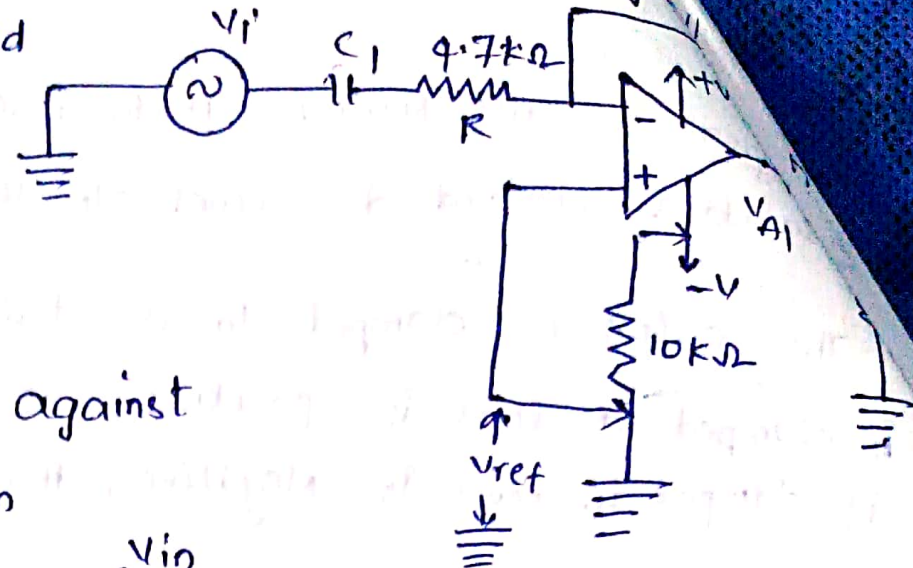 d
Vi
C1
4.7kΩ
R
+v
-
+
VA1
-V
10KΩ
against
Vref
Vin